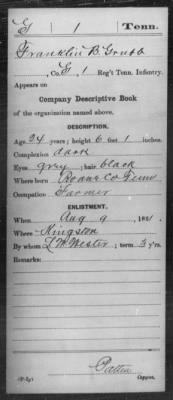 G 1 Tenn.
Franklin B. Grubb
, Co. G, 1 Reg't Tenn. Infantry.
Appears on
Company Descriptive Book
of the organization named above.
DESCRIPTION.
Age 24 years; height 6 feet 1 inches.
Complexion dark
Eyes grey; hair black
Where born Roane Co Tenn
Occupation Farmer
ENLISTMENT.
When Aug 9, 186 .
Where Kingston
By whom L. M. Wester; term 3 y'rs.
Remarks:
Patten
Copyist.